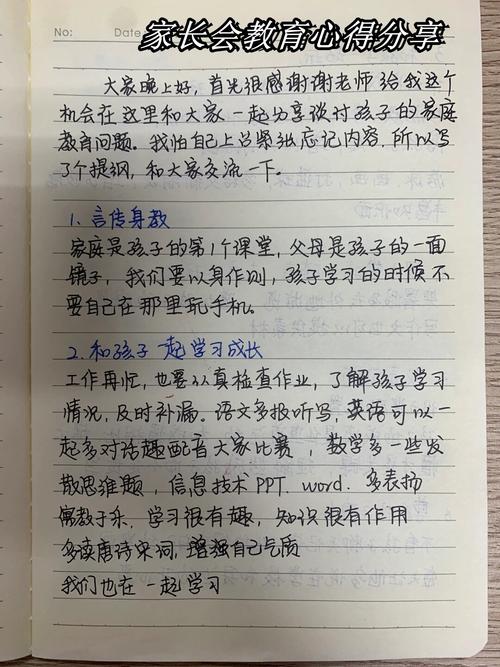 No:
Date
家长会教育心得分享
大家晚上好，首先很感谢谢老师给我这个
机会在这里和大家一起分享谈讨孩子的家庭
教育问题。我怕自己上台紧张忘记内容，所以写
了个提纲，和大家交流一下。
1. 言传身教
家庭是孩子的第1个课堂，父母是孩子的一面
镜子，我们要以身作则，孩子学习的时候不
要自己在那里玩手机。
2. 和孩子一起学习成长
工作再忙，也要认真检查作业，了解孩子学习
情况，及时补漏。语文多报听写，英语可以一
起多对话趣配音大家比赛，数学多一些发
散思维题，信息技术PPT、word、多表扬
教子乐，学习很有趣，知识很有作用
多读唐诗宋词，增强自己气质
我们也在一起学习